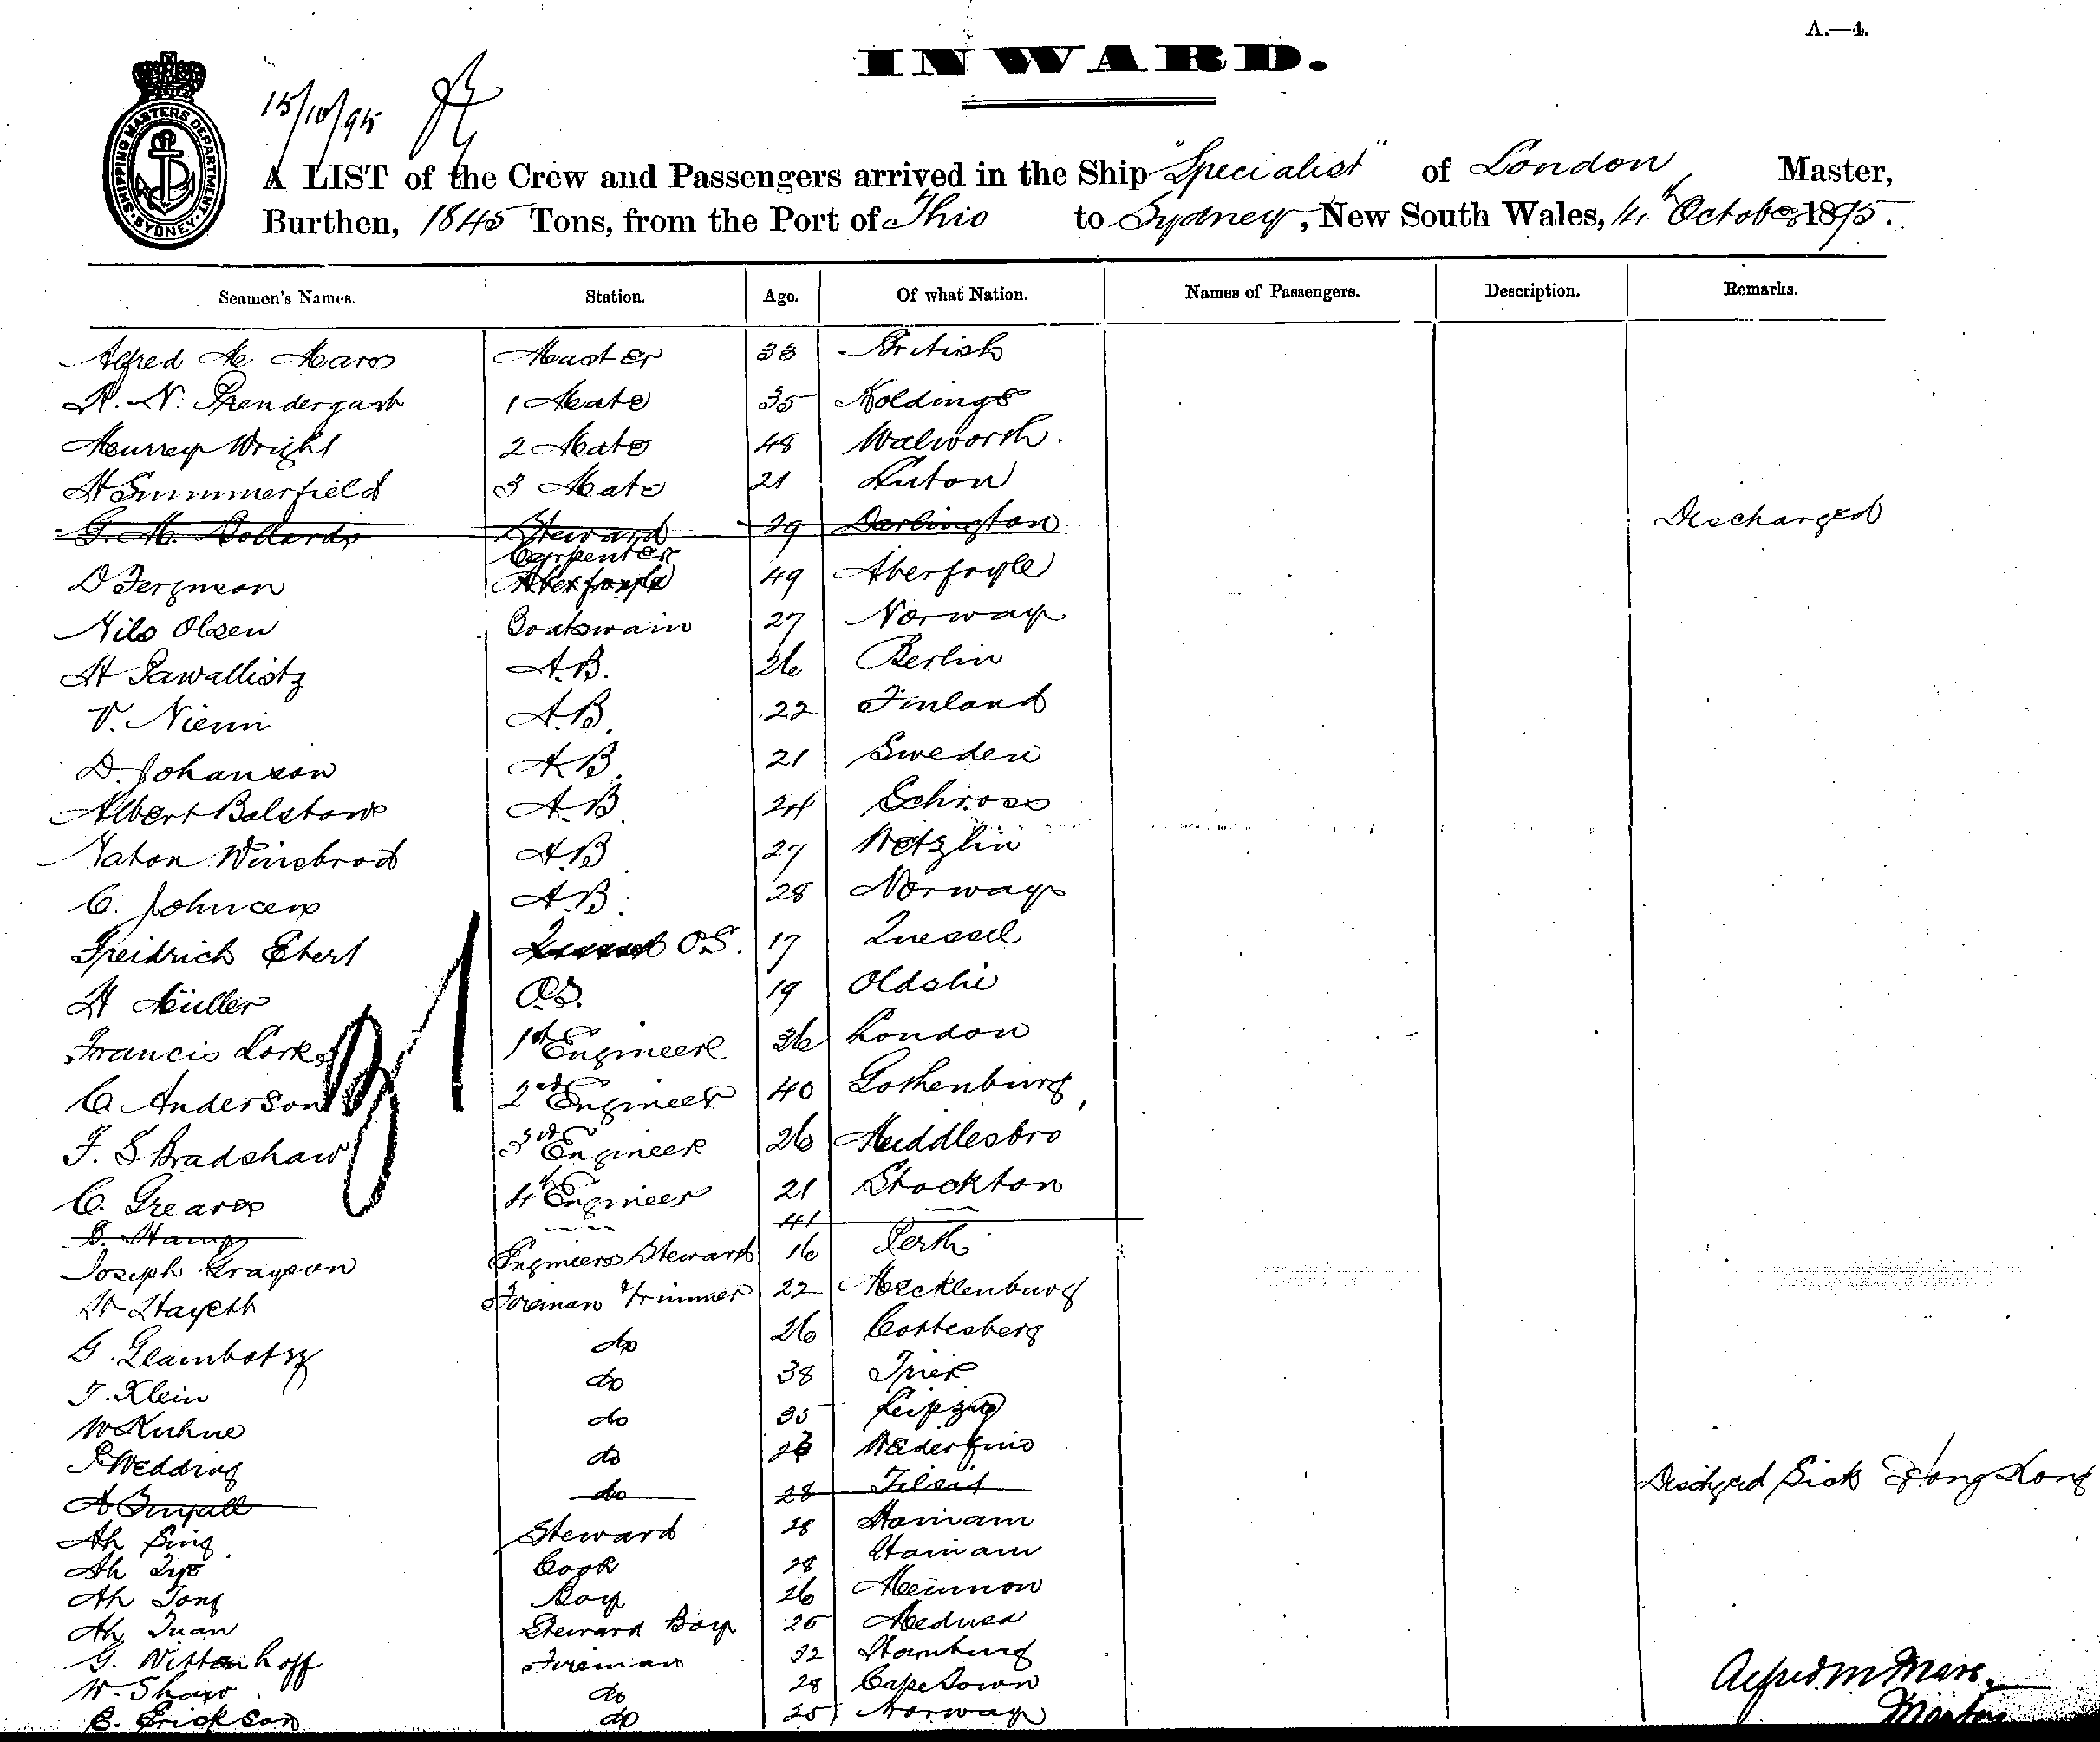 A.—4.
INWARD.
15/10/95
SHIPPING MASTERS DEPARTMENT. SYDNEY.
A LIST of the Crew and Passengers arrived in the Ship "Specialist" of London Master,
Burthen, 1845 Tons, from the Port of Thio to Sydney, New South Wales, 14th October 1895.
Seamen's Names. Station. Age. Of what Nation. Names of Passengers. Description. Remarks.
Alfred M. Mars Master 33 British
R. N. Prendergast 1 Mate 35
Murray Wright 2 Mate 48 Walworth.
H Summerfield 3 Mate 21 Luton
G. M. Bollards Steward 29 Darlington Discharged
Carpenter
D Ferguson Aberfoyle 49 Aberfoyle
Nils Olsen Boatswain 27 Norway
H Sawallistz A.B. 26 Berlin
V. Niemi A.B. 22 Finland
D. Johanson A.B. 21 Sweden
Albert Balstow A.B. 24
A.B. 27
C. Johnsen A.B. 28 Norway
Freidrich Ebert O.S. 17 Quessel
H Müller O.S. 19
Francis 1st Engineer 36 London
C. Anderson 2nd Engineer 40 Gothenburg
F. S Bradshaw 3rd Engineer 26 Middlesbro
C. Greaves 4th Engineer 21 Stockton
41
Joseph Grayson Engineers Steward 16 Perth
Fireman & Trimmer 22 Mecklenburg
G. do 26
J. Klein do 38 Trier
W Kuhne do 35 Leipzig
Wedding do
A do 28 Tilsit Dischged Sick Hong Kong
Ah Sing Steward 28 Hainam
Ah Cook 28 Hainam
Ah Tong Boy 26
Ah Tuan Steward Boy 25
G. Wittenhoff Fireman 32 Hamburg
W. Shaw do 28 Cape Town
E. Erickson do 25 Norway
Alfred M Mars.
Master